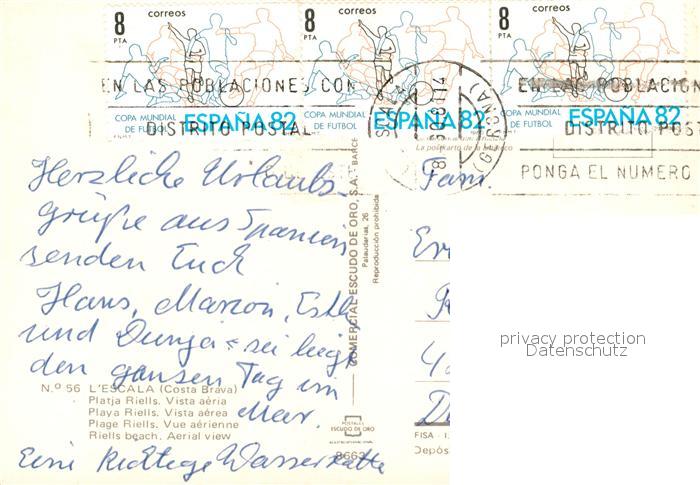 8 correos 8 correos 8 correos
PTA PTA PTA
EN LAS POBLACIONES CON EN LAS POBLACION
COPA MUNDIAL DE FUTBOL ESPAÑA 82 COPA MUNDIAL DE FUTBOL ESPAÑA 82 COPA MUNDIAL DE FUTBOL ESPAÑA 82
DISTRITO POSTAL DISTRITO POST
(GERONA)
PONGA EL NUMERO
Herzliche Urlaubs-
grüße aus Spanien
senden Euch
Hans, Marion,
und Dunja - sei liegt
den ganzen Tag im
Meer.
Eine richtige Wasserratte
N.º 56 L'ESCALA (Costa Brava)
Platja Riells. Vista aèria
Playa Riells. Vista aérea
Plage Riells. Vue aérienne
Riells beach. Aerial view
COMERCIAL ESCUDO DE ORO, S.A. - BARCE
Palaudarias, 26
Reproducción prohibida
POSTALES
ESCUDO DE ORO
8663
Fam.
privacy protection
Datenschutz
FISA - I.
Depós